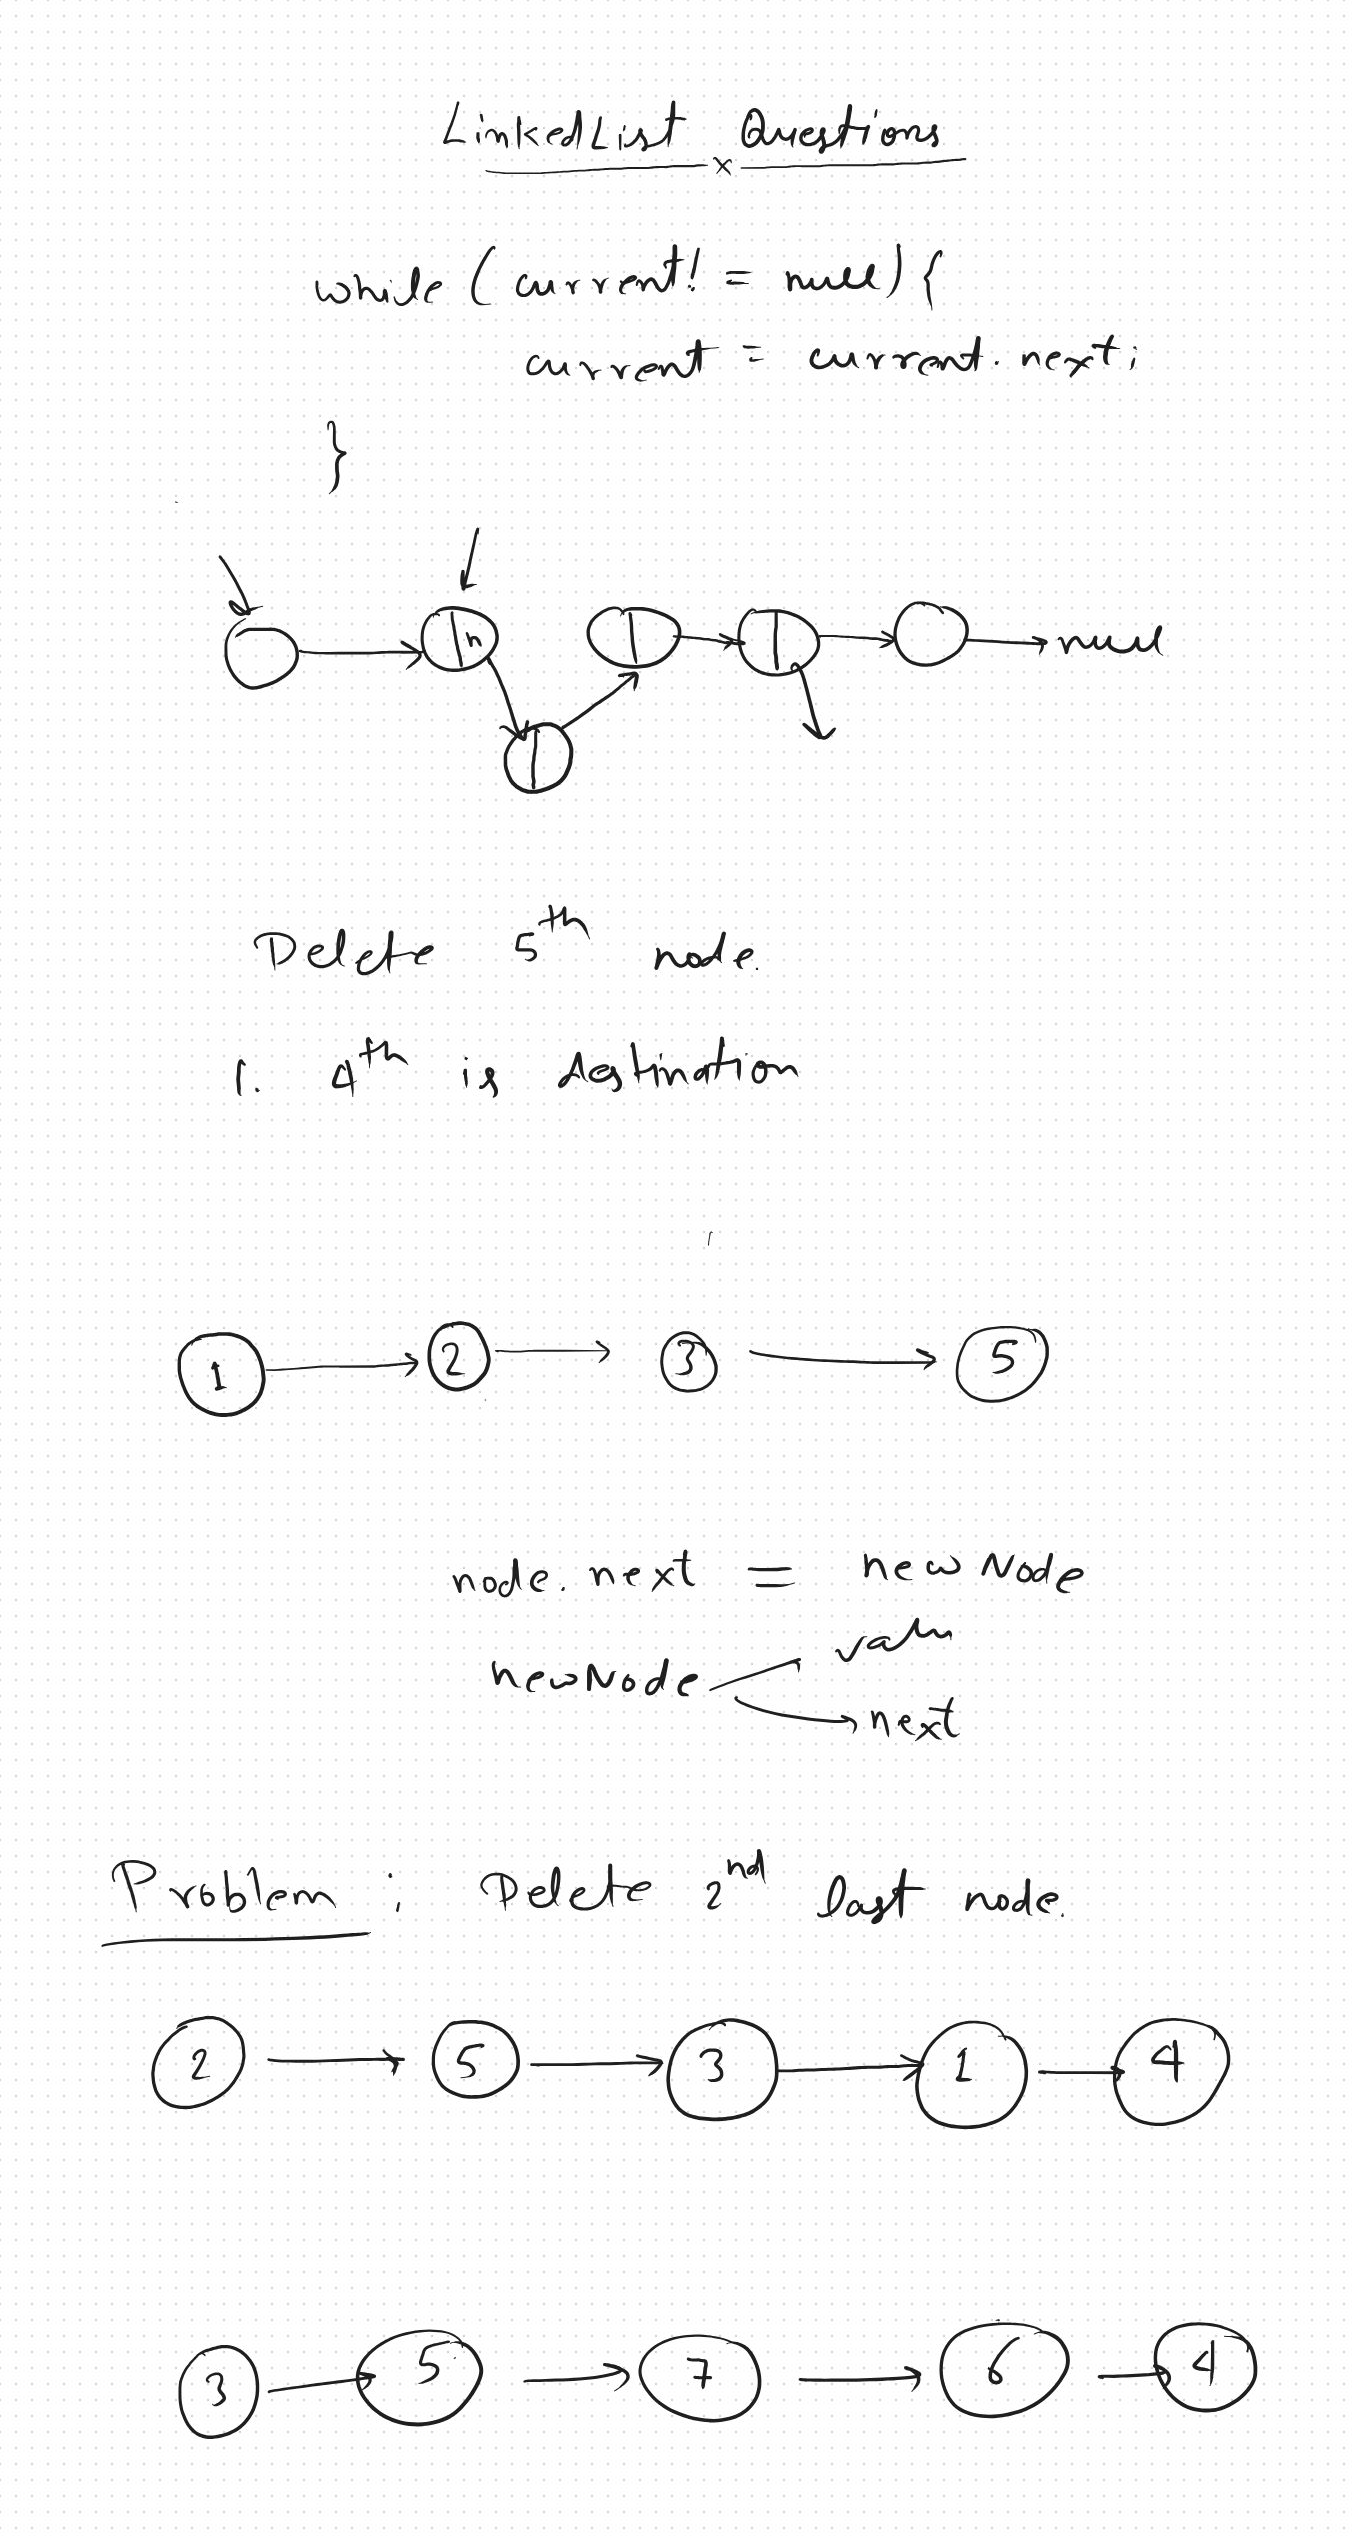 LinkedList Questions
x
while ( current != null ) {
current = current. next;
}
n
null
Delete 5th node.
1. 4th is destination
1 2 3 5
node. next = new Node
newNode valu
next
Problem : Delete 2nd last node.
2 5 3 1 4
3 5 7 6 4